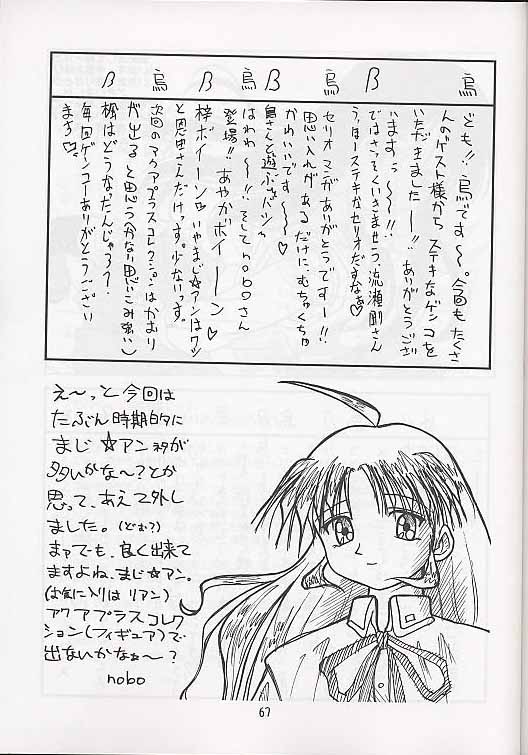 烏 β 烏 β 烏 β 烏 β
ども!!烏です〜。今回もたくさ
んのゲスト様からステキなゲンコを
いただきましたー!!ありがとうござ
いますぅ〜!!
ではさっそくいきませう。流瀬剛さん
うほーステキなセリオだすなぁ♡
セリオマンガありがとうですー!!
思い入れがあるだけにむちゃくちゃ
かわいいです〜〜♡
島さんと遊ぶさパシャ
はわわ〜!!そしてnoboさん
登場!!あやかボイーン
梓ボイーン♡いやまじ☆アンはワシ
と恩田さんだけっす。少ないっす。
次回のアクアプラスコレクションはかおり
が出ると思う(分ない思いこみ強い)
楓はどうなったんじゃろ?
毎回ゲンコーありがとうござい
ます♡
え〜っと今回は
たぶん時期的に
まじ☆アンネタが
多いかな〜?とか
思って、あえて外し
ました。(どむ?)
まァでも、良く出来て
ますよね、まじ☆アン。
(お気に入りは リアン)
アクアプラスコレク
ション(フィギュア)で
出ないかなぁ〜?
nobo
67